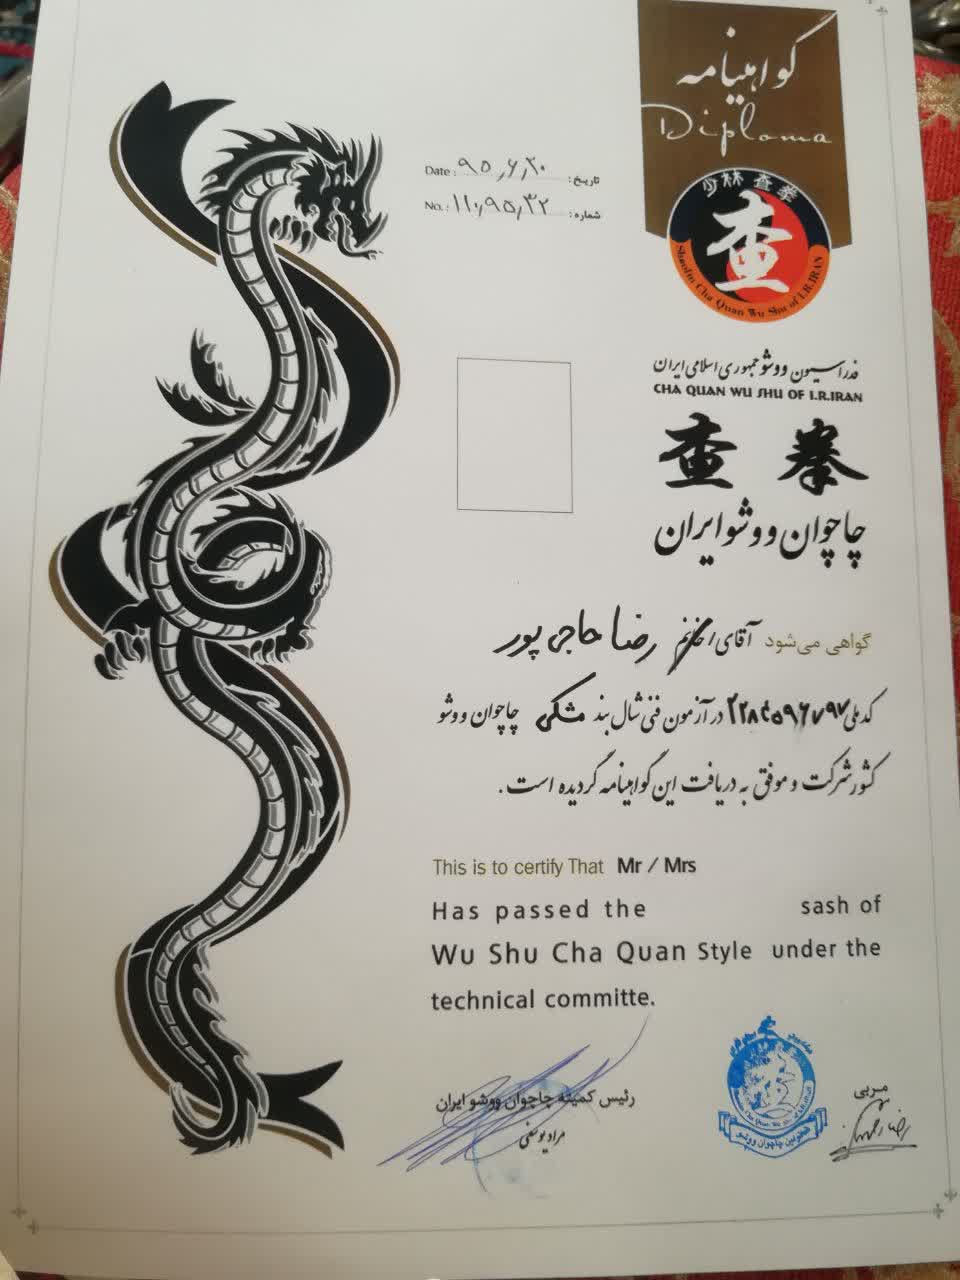 گواهینامه
Diploma
Date: ۹۵٫۶٫۲۰ تاریخ:
No.: ۱۱۰٫۹۵٫۳۲ شماره:
少林查拳
查
Shaolin Cha Quan Wu Shu of I.R.IRAN
فدراسیون ووشو جمهوری اسلامی ایران
CHA QUAN WU SHU OF I.R.IRAN
查 拳
چاچوان ووشو ایران
گواهی می‌شود آقای/خانم رضا حاجی پور
کدملی در آزمون فنی شال بند مشکی چاچوان ووشو
کشور شرکت و موفق به دریافت این گواهینامه گردیده است.
This is to certify That Mr / Mrs
Has passed the sash of
Wu Shu Cha Quan Style under the
technical committe.
رئیس کمیته چاچوان ووشو ایران
مراد یوسفی
مربی
Cha Quan Wu Shu of I.R.IRAN
چاچوان ووشو